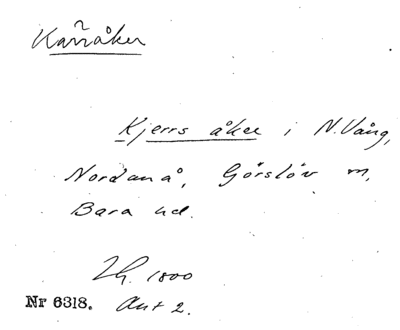 Kärråker
Kjerrs åker i N. Vång,
Nordanå, Görslöv m,
Bara hd.
Lh. 1800
Nr 6318. Akt 2.